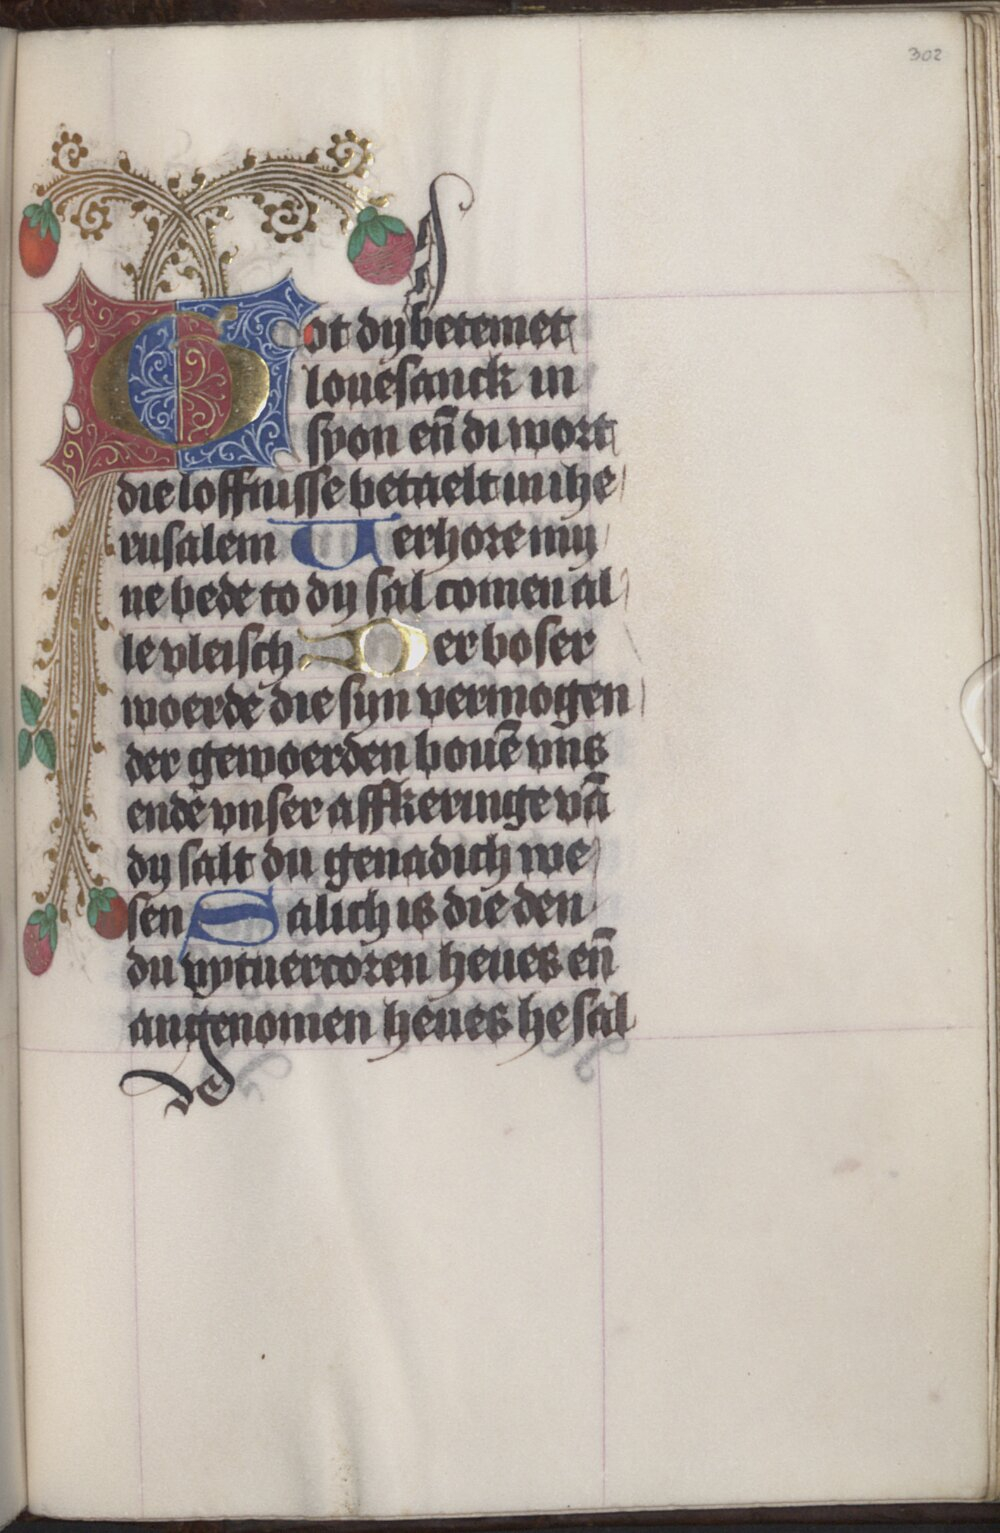 302
Got dy betemet
louesanck in
syon en̄ di wort
die loffnisse betaelt in ihe
rusalem Verhore my
ne bede to dy sal comen al
le vleisch Der boser
woerde die syn vermogen
der gewoerden bouē vns
ende vnser affkeringe vā
dy salt du genadich we
sen Salich is die den
du vytuercoren heues en̄
angenomen heues he sal